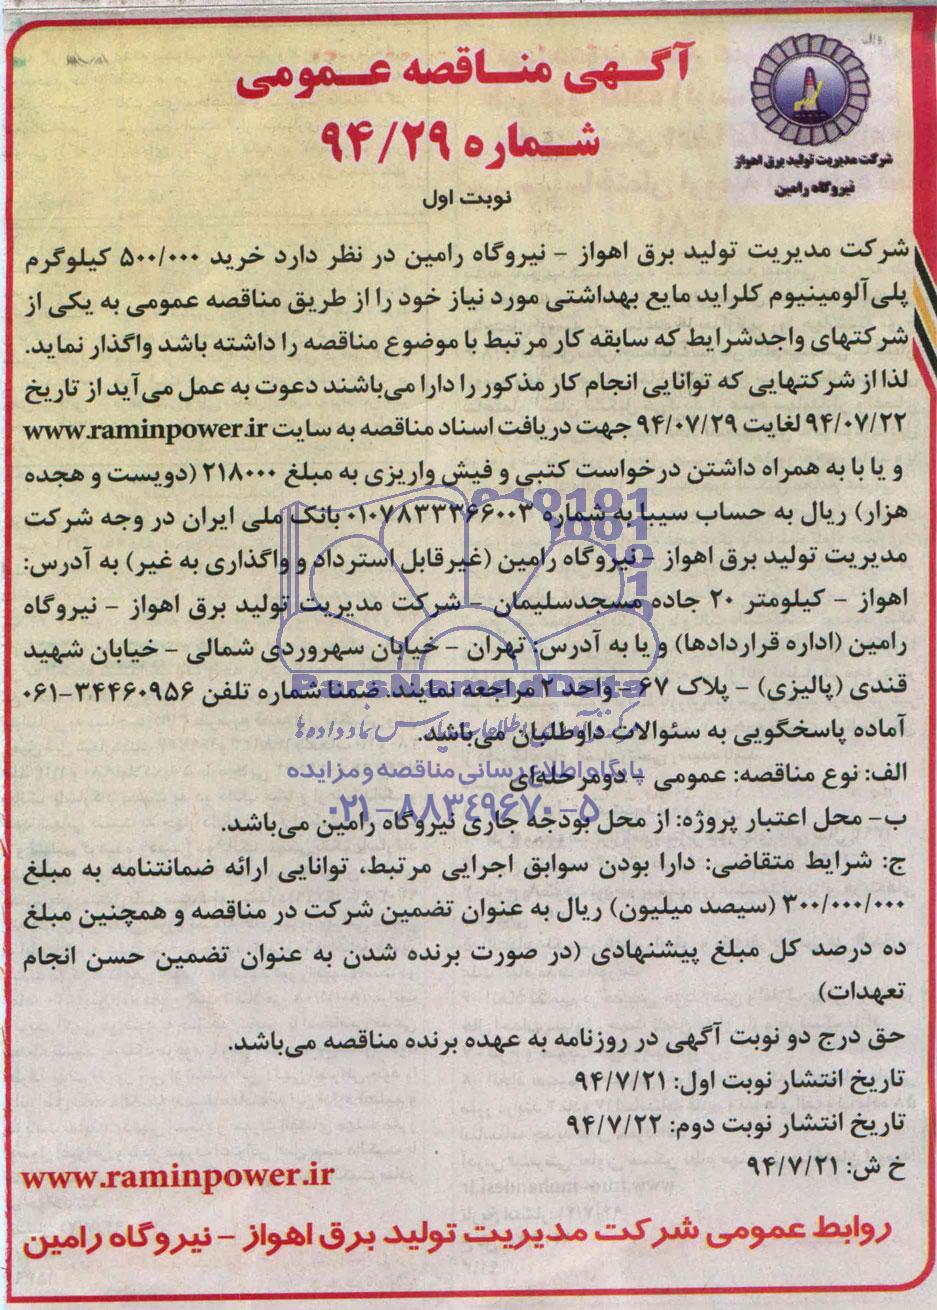 آگهی مناقصه عمومی
شماره ۹۴/۲۹
نوبت اول
شرکت مدیریت تولید برق اهواز
نیروگاه رامین
شرکت مدیریت تولید برق اهواز – نیروگاه رامین در نظر دارد خرید ۵۰۰/۰۰۰ کیلوگرم
پلی‌آلومینیوم کلراید مایع بهداشتی مورد نیاز خود را از طریق مناقصه عمومی به یکی از
شرکتهای واجدشرایط که سابقه کار مرتبط با موضوع مناقصه را داشته باشد واگذار نماید.
لذا از شرکتهایی که توانایی انجام کار مذکور را دارا می‌باشند دعوت به عمل می‌آید از تاریخ
۹۴/۰۷/۲۲ لغایت ۹۴/۰۷/۲۹ جهت دریافت اسناد مناقصه به سایت www.raminpower.ir
و یا با به همراه داشتن درخواست کتبی و فیش واریزی به مبلغ ۲۱۸۰۰۰ (دویست و هجده
هزار) ریال به حساب سیبا به شماره ۰۱۰۷۸۳۳۳۶۶۰۰۳ بانک ملی ایران در وجه شرکت
مدیریت تولید برق اهواز – نیروگاه رامین (غیرقابل استرداد و واگذاری به غیر) به آدرس:
اهواز – کیلومتر ۲۰ جاده مسجدسلیمان – شرکت مدیریت تولید برق اهواز – نیروگاه
رامین (اداره قراردادها) و یا به آدرس: تهران – خیابان سهروردی شمالی – خیابان شهید
قندی (پالیزی) – پلاک ۶۷ – واحد ۲ مراجعه نمایند. ضمنا شماره تلفن ۳۴۴۶۰۹۵۶–۰۶۱
آماده پاسخگویی به سئوالات داوطلبان می‌باشد.
الف: نوع مناقصه: عمومی – دومرحله‌ای
ب– محل اعتبار پروژه: از محل بودجه جاری نیروگاه رامین می‌باشد.
ج: شرایط متقاضی: دارا بودن سوابق اجرایی مرتبط، توانایی ارائه ضمانتنامه به مبلغ
۳۰۰/۰۰۰/۰۰۰ (سیصد میلیون) ریال به عنوان تضمین شرکت در مناقصه و همچنین مبلغ
ده درصد کل مبلغ پیشنهادی (در صورت برنده شدن به عنوان تضمین حسن انجام
تعهدات)
حق درج دو نوبت آگهی در روزنامه به عهده برنده مناقصه می‌باشد.
تاریخ انتشار نوبت اول: ۹۴/۷/۲۱
تاریخ انتشار نوبت دوم: ۹۴/۷/۲۲
خ ش: ۹۴/۷/۲۱
www.raminpower.ir
روابط عمومی شرکت مدیریت تولید برق اهواز – نیروگاه رامین
ParsNamadData
پایگاه اطلاع رسانی مناقصه و مزایده
۰۲۱–۸۸۳۴۹۶۷۰–۵